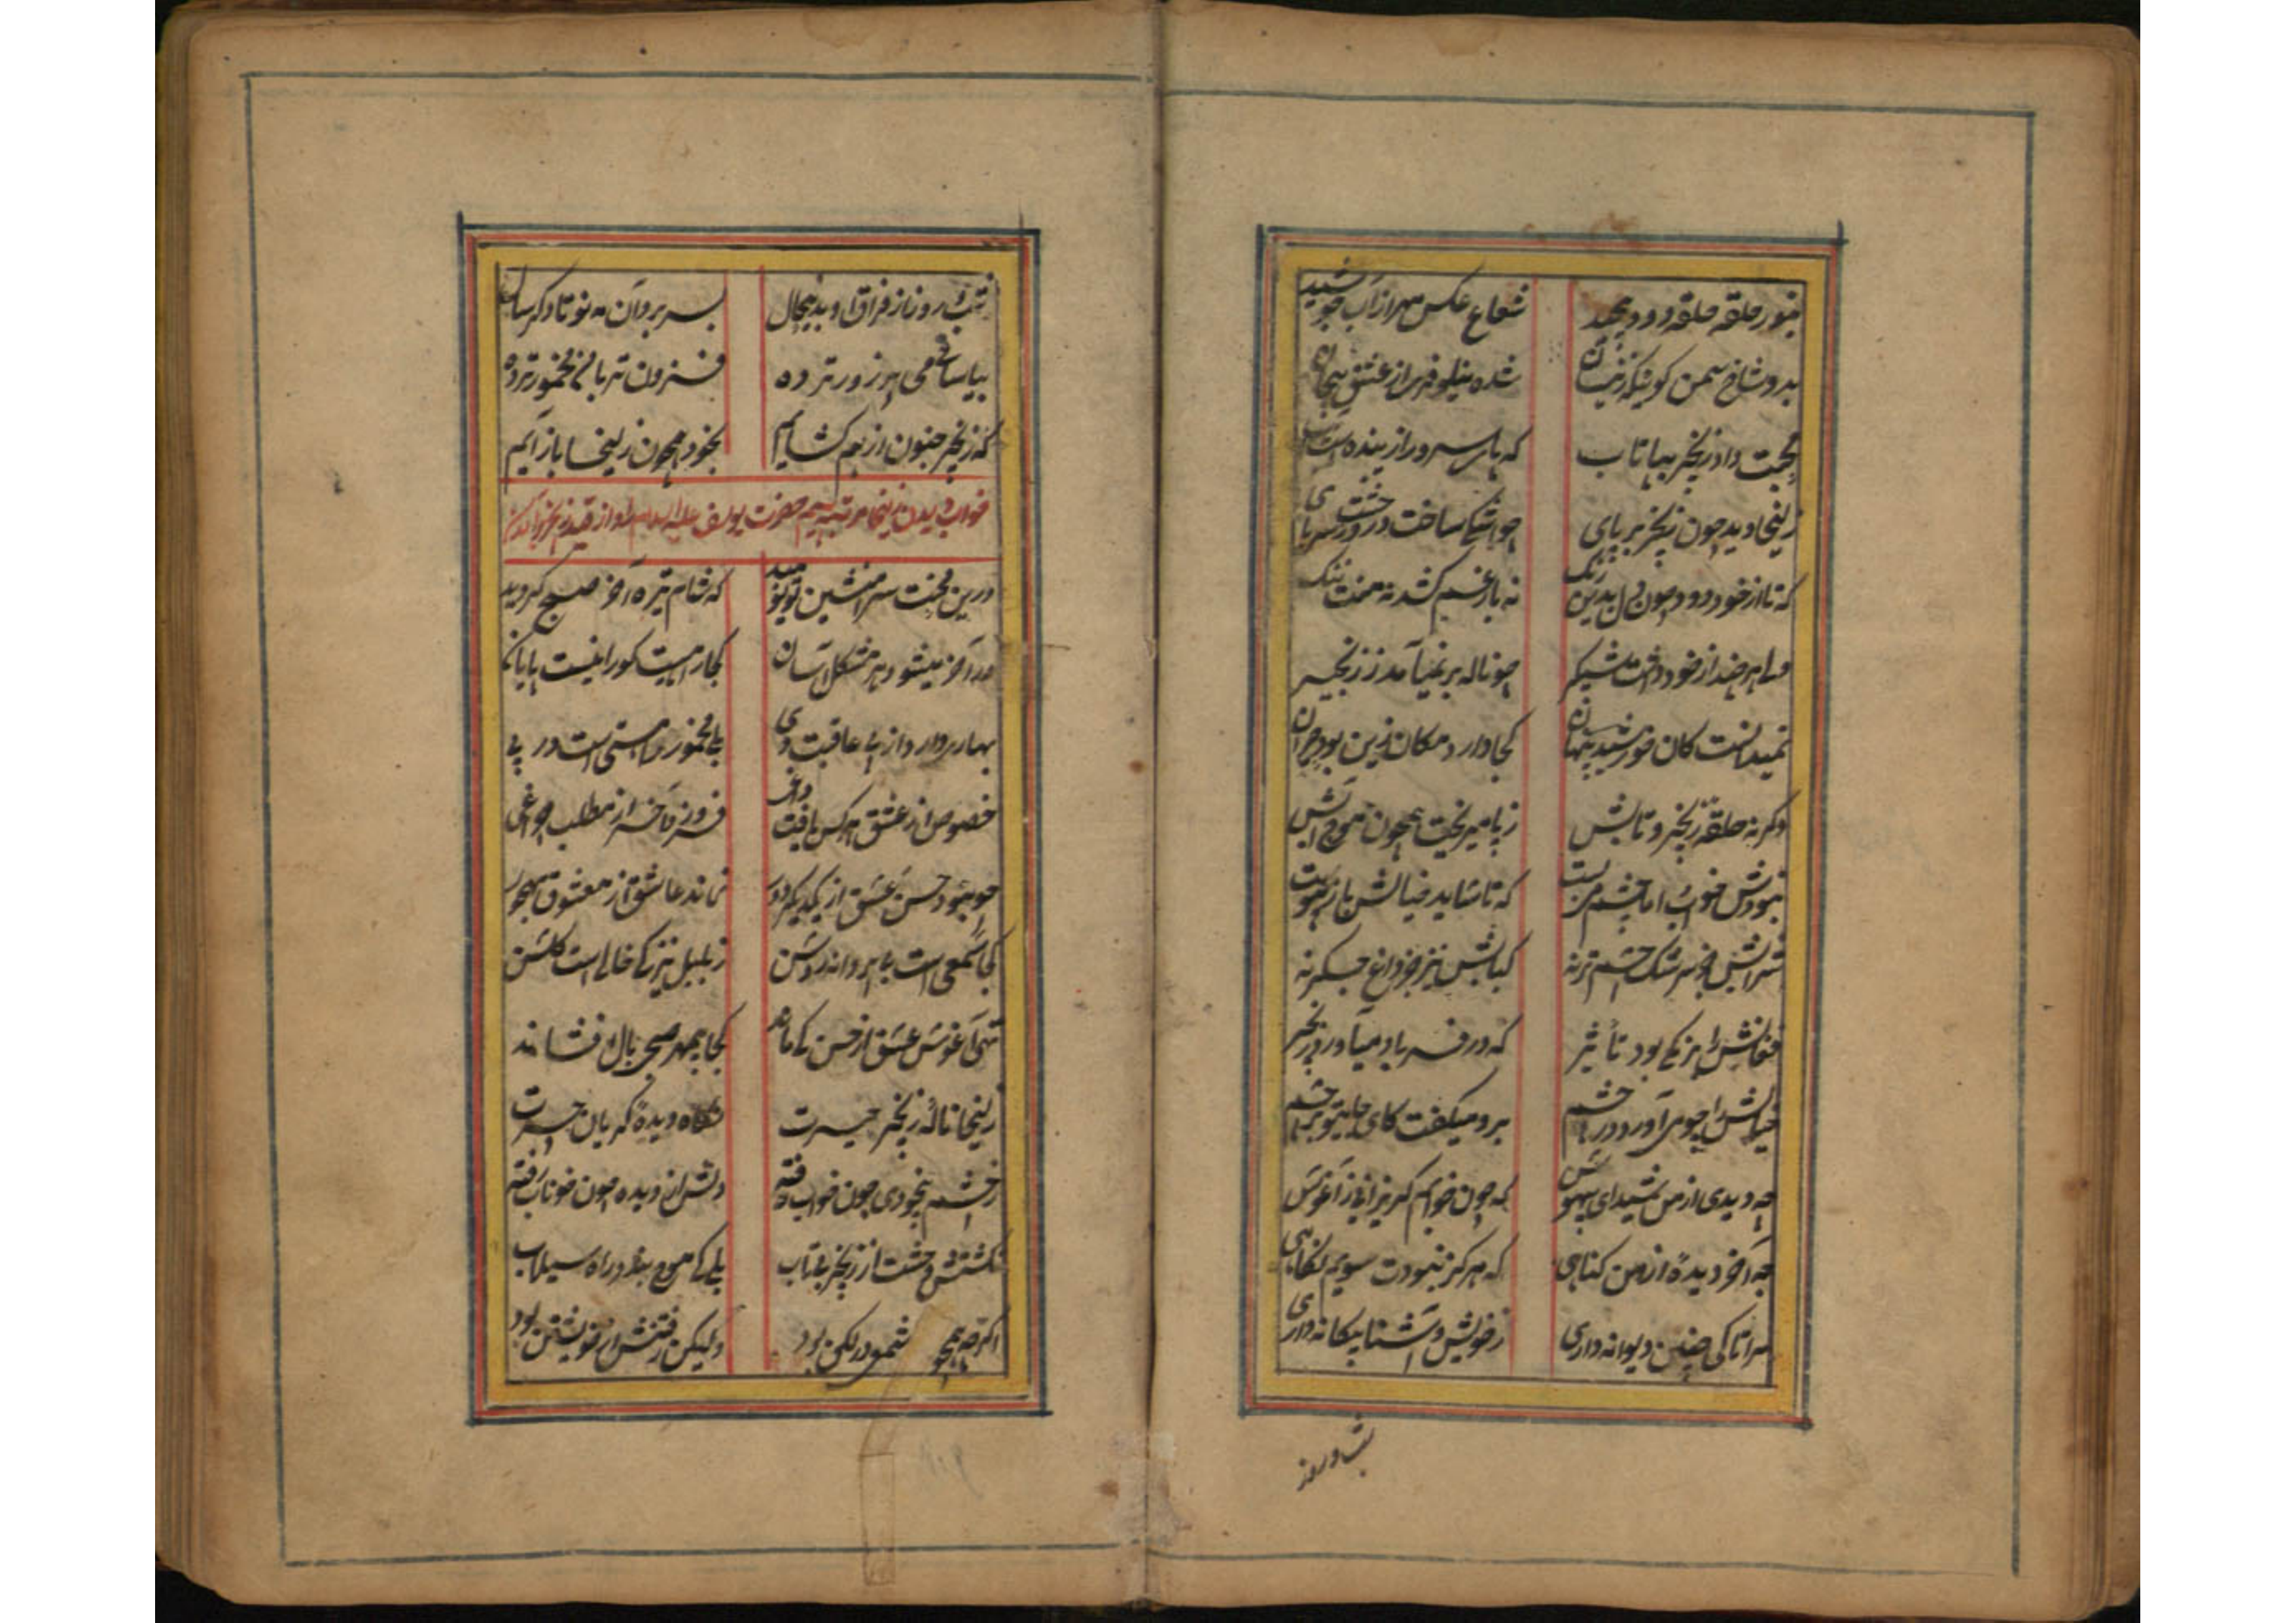 بنور حلقه حلقه دود پیچید شعاع عکس مهر از آب جوشید
بدو شاخ سمن شده نیلوفری از عشق پیچان
محبت داد زنجیر بپا تاب که پای سرو را زیبنده است آب
زلیخا دید چون زنجیر بر پای چو اشکی ساخت در
که تا از خود دود چون بدین رنگ نه بار غم کشد نه منت ننگ
ولی هر چند از خود داشت شبگیر چو ناله بر نمی‌آمد ز زنجیر
نمیدانست کان خورشید پنهان کجا دارد مکان زین بود حیران
وگرنه حلقه زنجیر و تابش ز پا میریخت همچون موج آبش
نبودش خواب اما چشم می‌بست که تا شاید خیالش باز پیوست
شرابش جز سرشک چشم تر نه کبابش نیز جز داغ جگر نه
فغانش را ز بود تأثیر که در فریاد می‌آورد زنجیر
خیالش را چو می‌آورد در چشم برو میگفت کای جایت بر چشم
چه دیدی از من شیدای بیهوش که چون خوابم گریزانی ز آغوش
چه آخر دیدهٔ از من گناهی که هرگز نبودت سویم نگاهی
مرا تا کی چنین دیوانه داری ز خویش و آشنا بیگانه داری
شب و روز
شب و روز از فراق او بدینحال بسر برد آن مه نو تا دگر سال
بیا ساقی می پر زور تر ده فزون تر
که زنجیر جنون از هم گشایم بخود همچون زلیخا باز آیم
خواب دیدن زلیخا مرتبه سیم حضرت یوسف علیه السلام را و از قید زنجیر
درین محنت سرا منشین تو نومید که شام تیره آخر صبح گردید
در آخر میشود هر مشکل آسان کجا راهیست کو را نیست پایان
بهار بردارد از پی عاقبت دی بلی مخمور را مستی است در پی
خصوص از عشق هر کس یافت داغی فروزد آخر از مطلب چراغی
چو نبود حسن و عشق از یکدیگر دور نماند عاشق از معشوق مهجور
کجا شمعی است بی پروانه روشن ز بلبل نیز کی خالی است گلشن
تهی آغوش عشق از حسن کی ماند کجا بیمهر صبحی بال افشاند
زلیخا نالهٔ زنجیر حیرت نگاه دیدهٔ گریان حسرت
ز چشم بیخودی چون خواب رفته دلش از دیده چون خوناب رفته
نگشتش وحشت از زنجیر بیتاب بلی کی موج بندد راه سیلاب
اگرچه همچو شمع در لگن بود ولیکن رفتنش از خویشتن بود